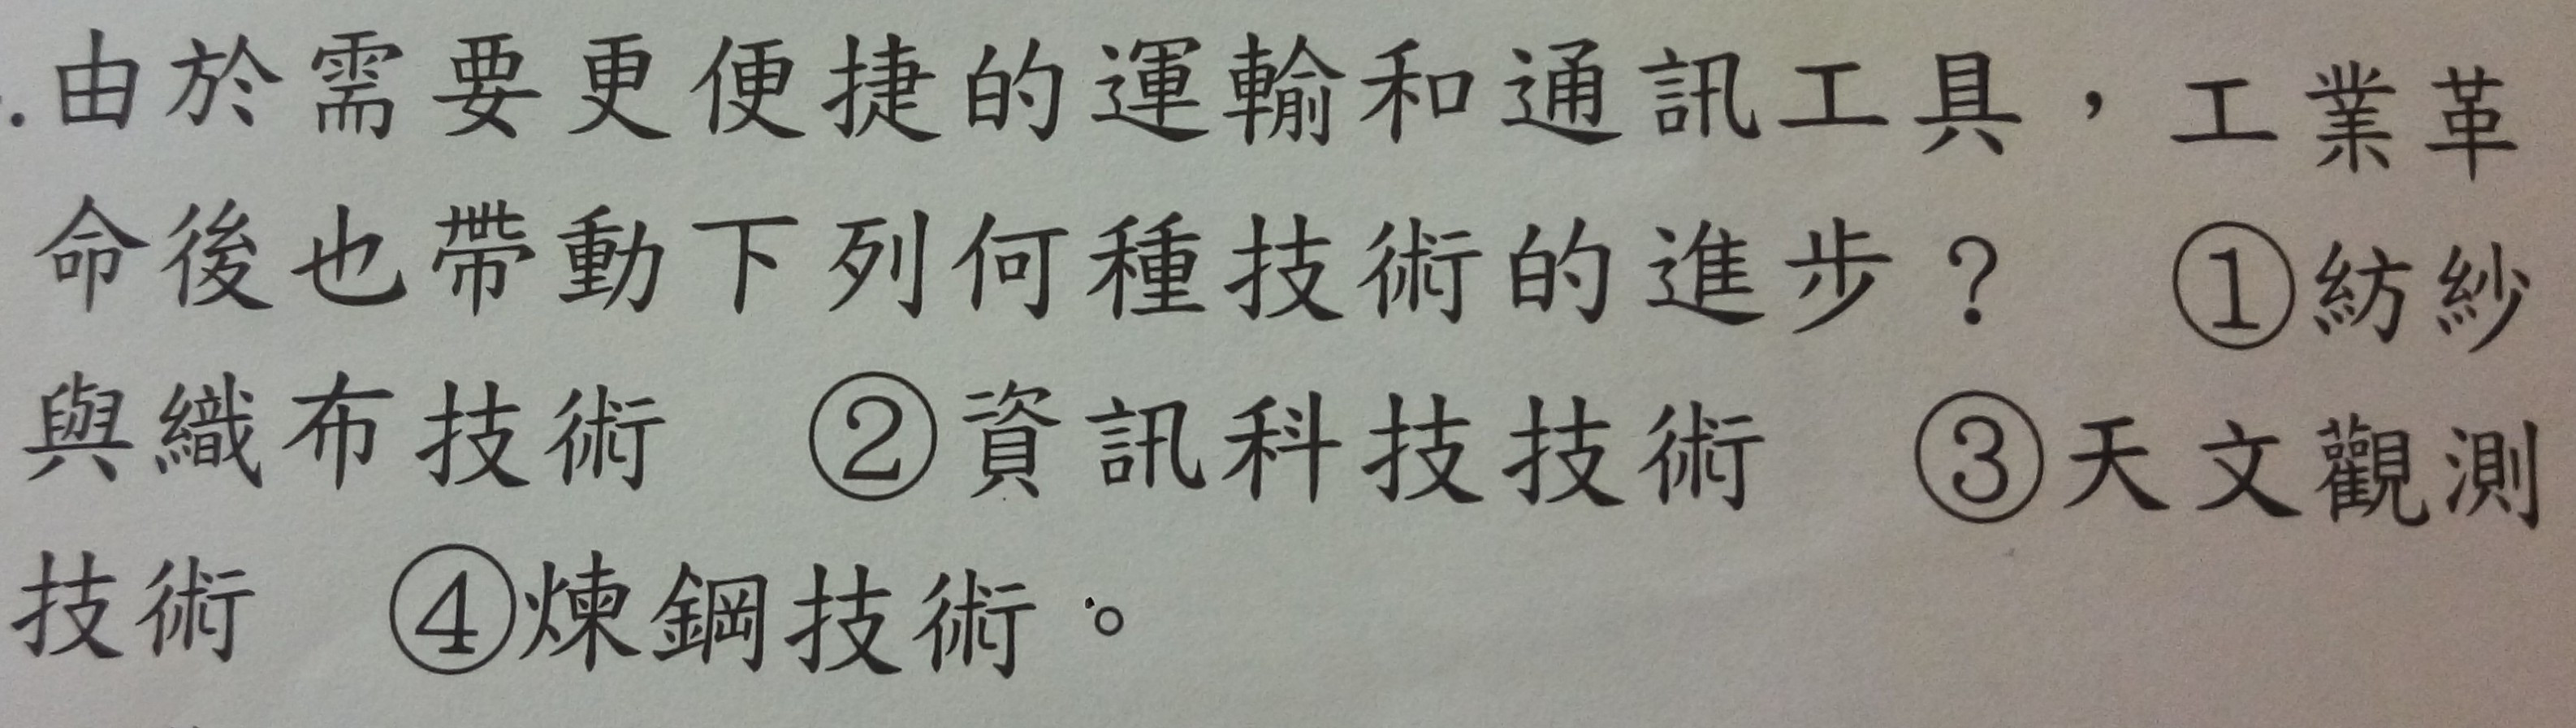 .由於需要更便捷的運輸和通訊工具，工業革
命後也帶動下列何種技術的進步？　①紡紗
與織布技術　②資訊科技技術　③天文觀測
技術　④煉鋼技術。